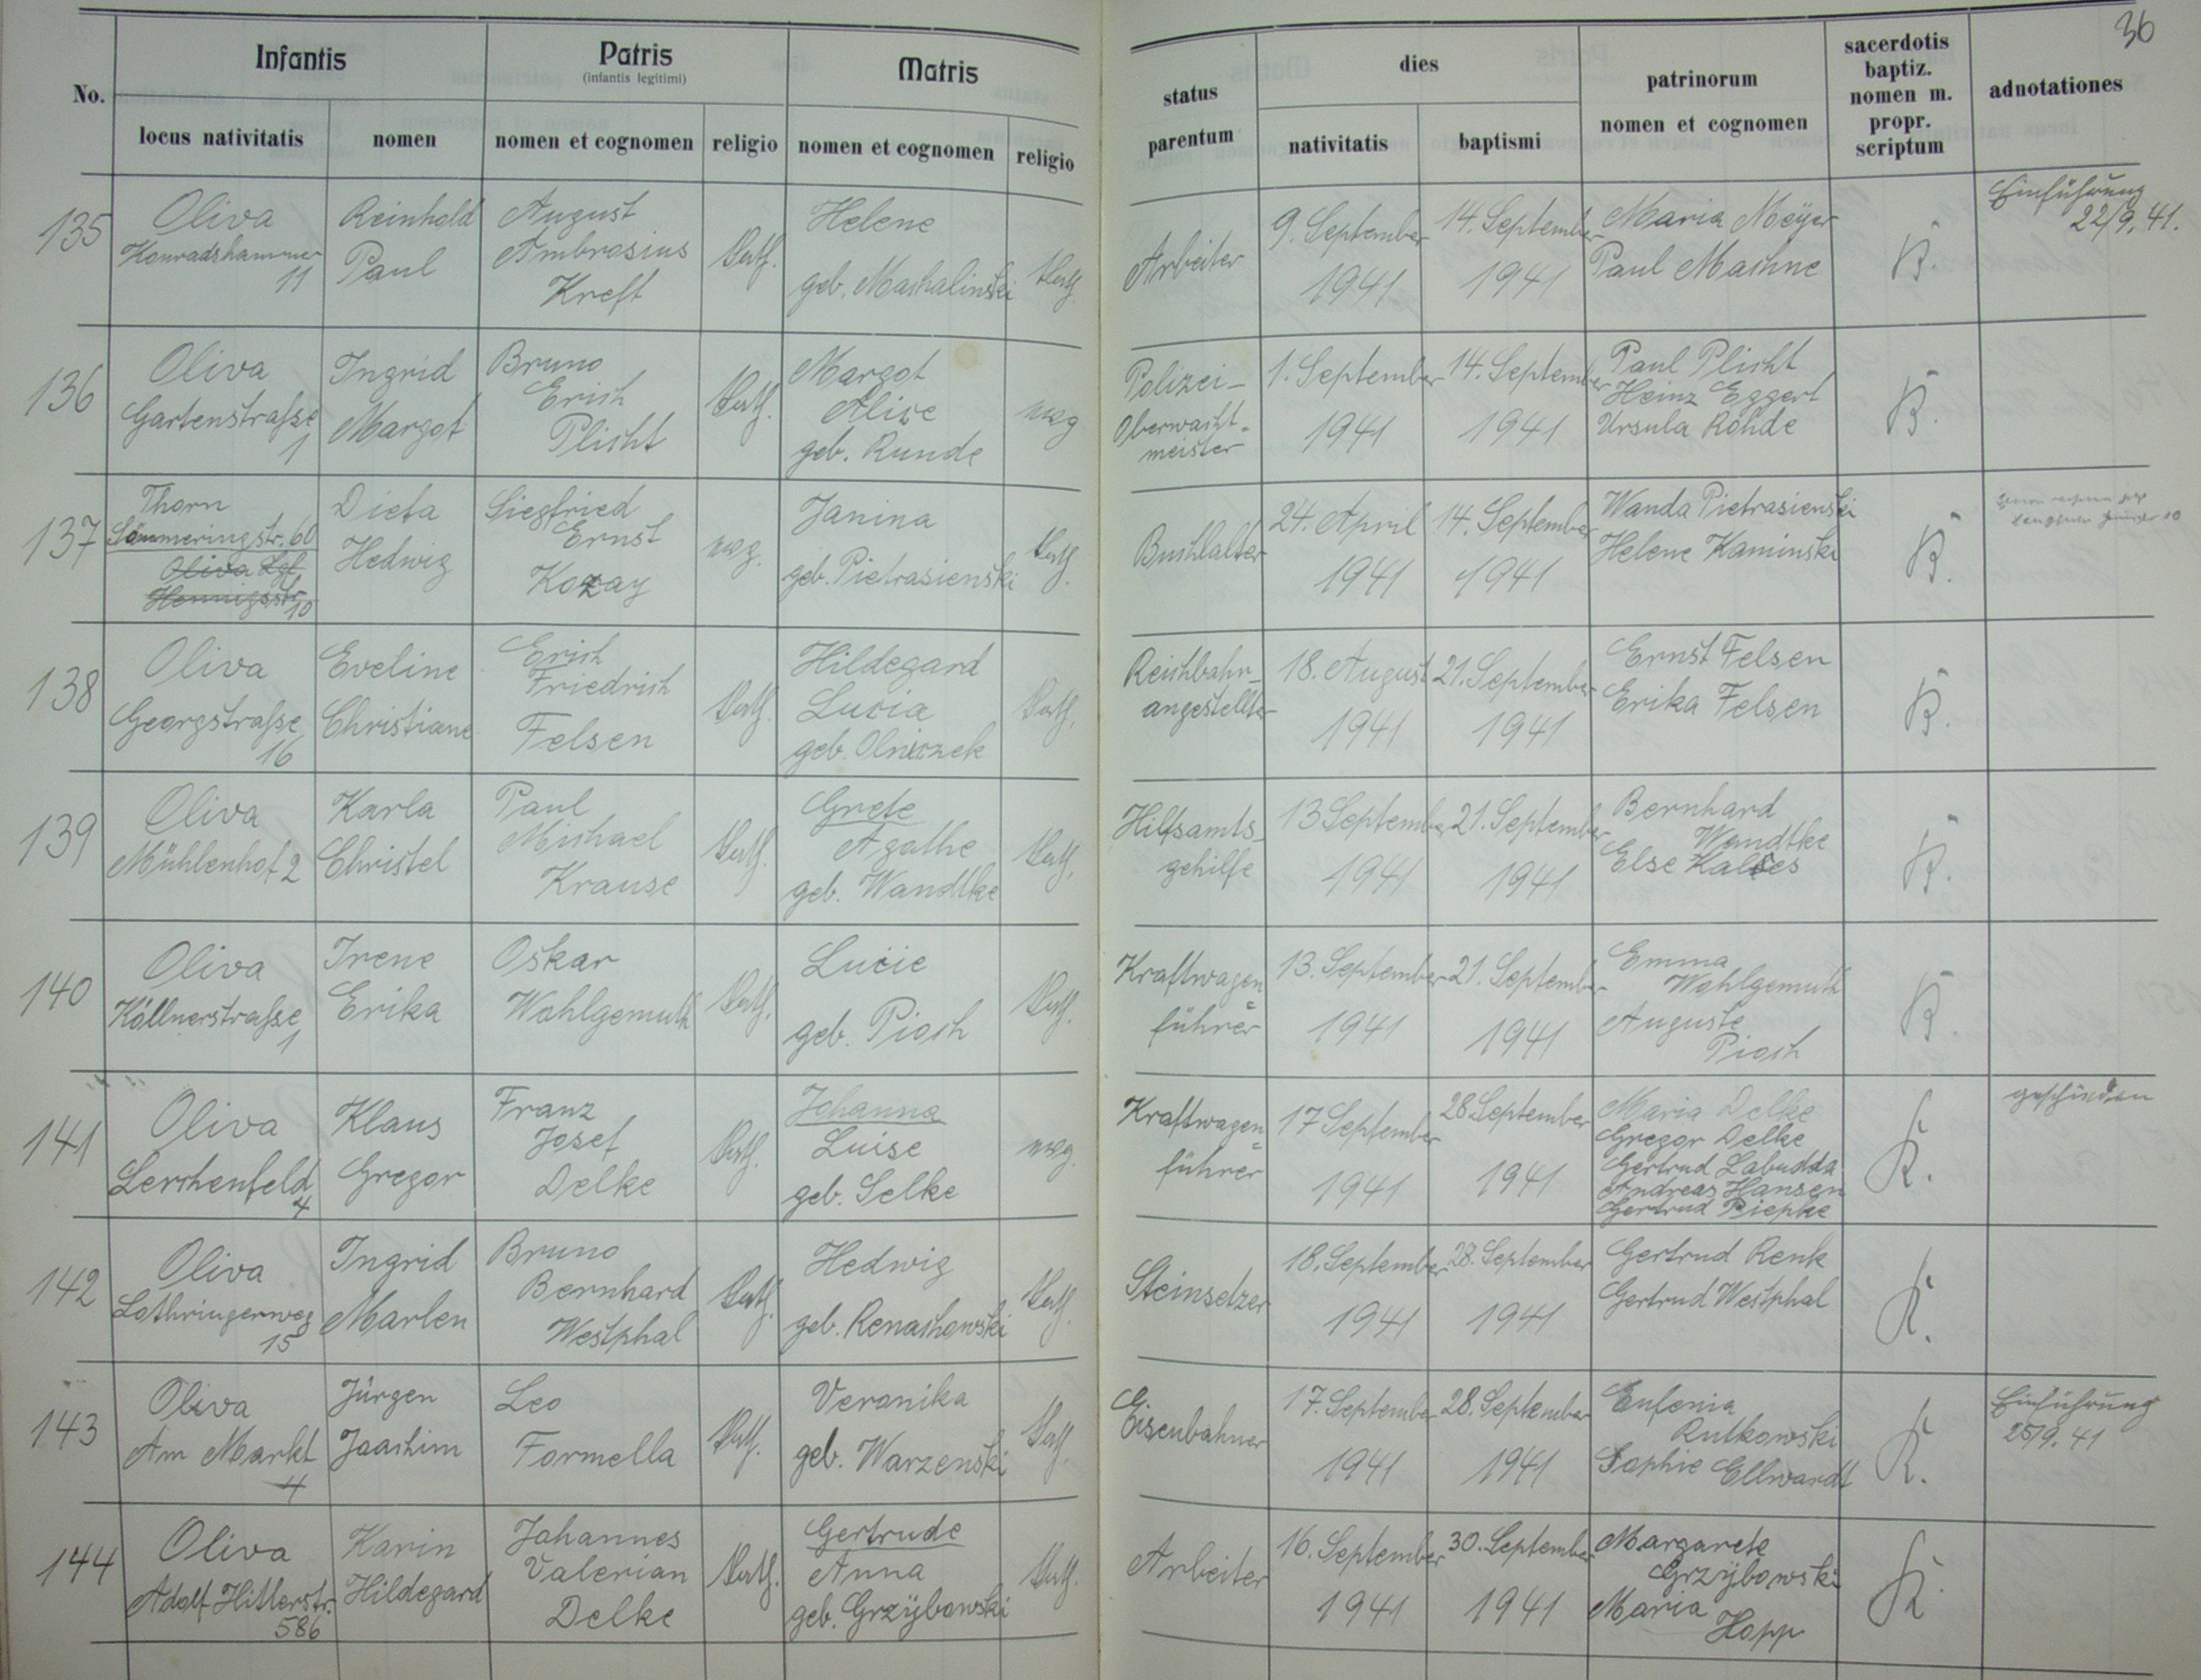 36
Infantis
Patris
(infantis legitimi)
Matris
status
parentum
dies
patrinorum
nomen et cognomen
sacerdotis
baptiz.
nomen m.
propr.
scriptum
adnotationes
No.
locus nativitatis
nomen
nomen et cognomen
religio
nomen et cognomen
religio
nativitatis
baptismi
135
Oliva
Konradshammer
11
Reinhold
Paul
August
Ambrosius
Kreft
kath.
Helene
geb. Machalinski
kath.
Arbeiter
9. September
1941
14. September
1941
Maria Meyer
Paul Machne
B.
Einführung
22/9. 41.
136
Oliva
Gartenstraße
1
Ingrid
Margot
Bruno
Erich
Plicht
kath.
Margot
Alice
geb. Runde
evg
Polizei-
Oberwacht-
meister
1. September
1941
14. September
1941
Paul Plicht
Heinz Eggert
Ursula Rohde
B.
137
Thorn
Sömmeringstr. 60
Oliva Lgf.
Hennigsstr.
10
Dieta
Hedwig
Siegfried
Ernst
Kozay
evg.
Janina
geb. Pietrasienski
kath.
Buchhalter
24. April
1941
14. September
1941
Wanda Pietrasienski
Helene Kaminski
B.
138
Oliva
Georgstraße
16
Eveline
Christiane
Erich
Friedrich
Felsen
kath.
Hildegard
Lucia
geb. Olniczek
kath.
Reichbahn-
angestellter
18. August
1941
21. September
1941
Ernst Felsen
Erika Felsen
B.
139
Oliva
Mühlenhof 2
Karla
Christel
Paul
Michael
Krause
kath.
Grete
Agathe
geb. Wandtke
kath.
Hilfsamts-
gehilfe
13 September
1941
21. September
1941
Bernhard
Wandtke
Else
B.
140
Oliva
Köllnerstraße
1
Irene
Erika
Oskar
Wohlgemuth
kath.
Lucie
geb. Pioch
kath.
Kraftwagen=
führer
13. September
1941
21. September
1941
Emma
Wohlgemuth
Auguste
Pioch
B.
141
Oliva
Lerchenfeld
4
Klaus
Gregor
Franz
Josef
Delke
kath.
Johanna
Luise
geb. Selke
evg.
Kraftwagen=
führer
17 September
1941
28 September
1941
Maria Delke
Gregor Delke
Gertrud Labudda
Andreas Hansen
Gertrud Piepke
K.
geschieden
142
Oliva
Lothringerweg
15
Ingrid
Marlen
Bruno
Bernhard
Westphal
kath.
Hedwig
geb. Renachowski
kath.
Steinsetzer
18. September
1941
28. September
1941
Gertrud Renk
Gertrud Westphal
K.
143
Oliva
Am Markt
4
Jürgen
Joachim
Leo
Formella
kath.
Veronika
geb. Warzenski
kath.
Eisenbahner
17. September
1941
28. September
1941
Eufenia
Rutkowski
Sophie Ellwardt
K.
Einführung
25/9. 41
144
Oliva
Adolf Hitlerstr.
586
Karin
Hildegard
Johannes
Valerian
Delke
kath.
Gertrude
Anna
geb. Grzÿbowski
kath.
Arbeiter
16. September
1941
30. September
1941
Margarete
Grzÿbowski
Maria
Hopp
K